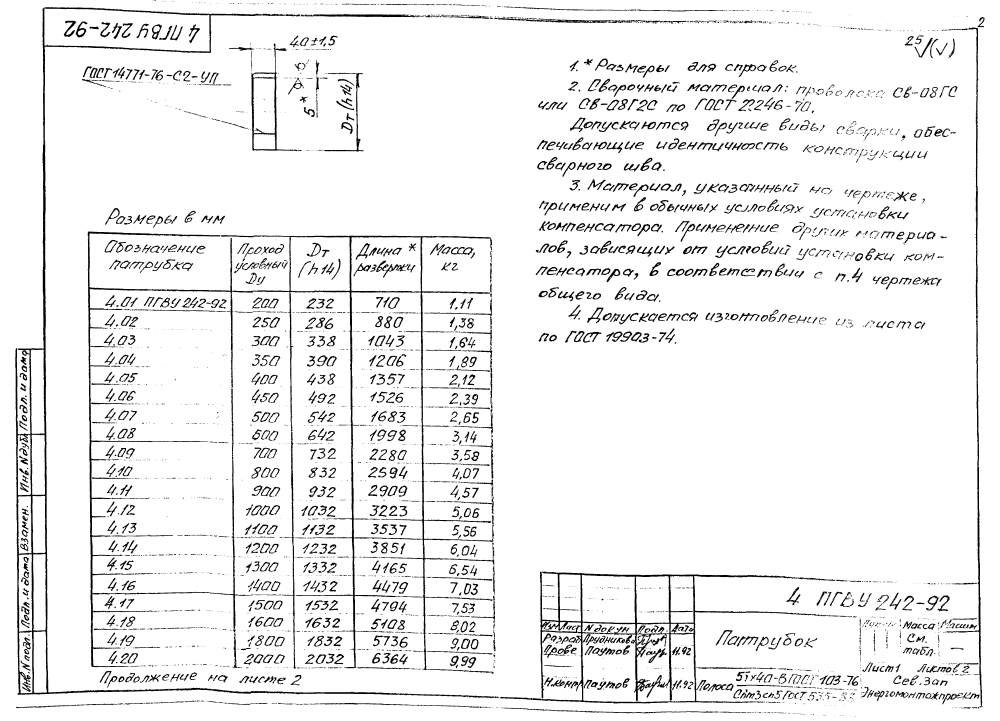 2
4 ПГВУ 242-92
40±1,5
25/(√)
ГОСТ 14771-76-С2-УП
5*
Dт (h14)
1. * Размеры для справок.
2. Сварочный материал: проволока СВ-08ГС
или СВ-08Г2С по ГОСТ 2246-70.
Допускаются другие виды сварки, обес-
печивающие идентичность конструкции
сварного шва.
3. Материал, указанный на чертеже,
применим в обычных условиях установки
компенсатора. Применение других материа-
лов, зависящих от условий установки ком-
пенсатора, в соответствии с п.4 чертежа
общего вида.
4. Допускается изготовление из листа
по ГОСТ 19903-74.
Размеры в мм
Обозначение патрубка | Проход условный Dу | Dт (h14) | Длина * развертки | Масса, кг
4.01 ПГВУ 242-92 200 232 710 1,11
4.02 250 286 880 1,38
4.03 300 338 1043 1,64
4.04 350 390 1206 1,89
4.05 400 438 1357 2,12
4.06 450 492 1526 2,39
4.07 500 542 1683 2,65
4.08 600 642 1998 3,14
4.09 700 732 2280 3,58
4.10 800 832 2594 4,07
4.11 900 932 2909 4,57
4.12 1000 1032 3223 5,06
4.13 1100 1132 3537 5,56
4.14 1200 1232 3851 6,04
4.15 1300 1332 4165 6,54
4.16 1400 1432 4479 7,03
4.17 1500 1532 4794 7,53
4.18 1600 1632 5108 8,02
4.19 1800 1832 5736 9,00
4.20 2000 2032 6364 9,99
Продолжение на листе 2
Инв.N подл. Подп. и дата Взамен. Инв.N дубл. Подп. и дата
4 ПГВУ 242-92
Изм Лист N докум Подп. Дата
Разраб Прудникова
Прове Паутов 11.92
Н.контр Паутов 11.92
Патрубок
Масса Масшт
См. табл. —
Лист 1 Листов 2
Полоса 5х40-В ГОСТ 103-76
Ст3сп5 ГОСТ 535-
Сев.Зап
Энергомонтажпроект